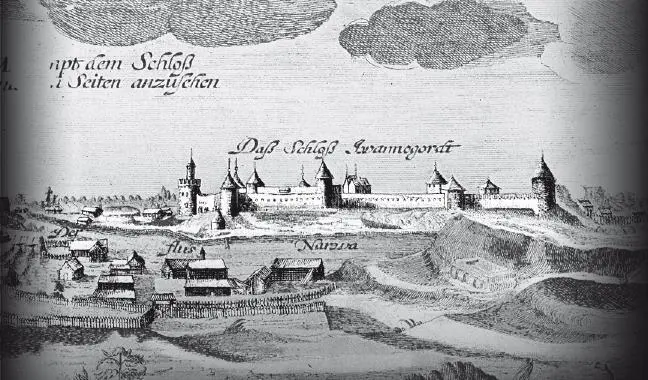 dem Schloß
Seiten anzusehen
Daß Schloß Iwannogordt
Der
flus Narwa